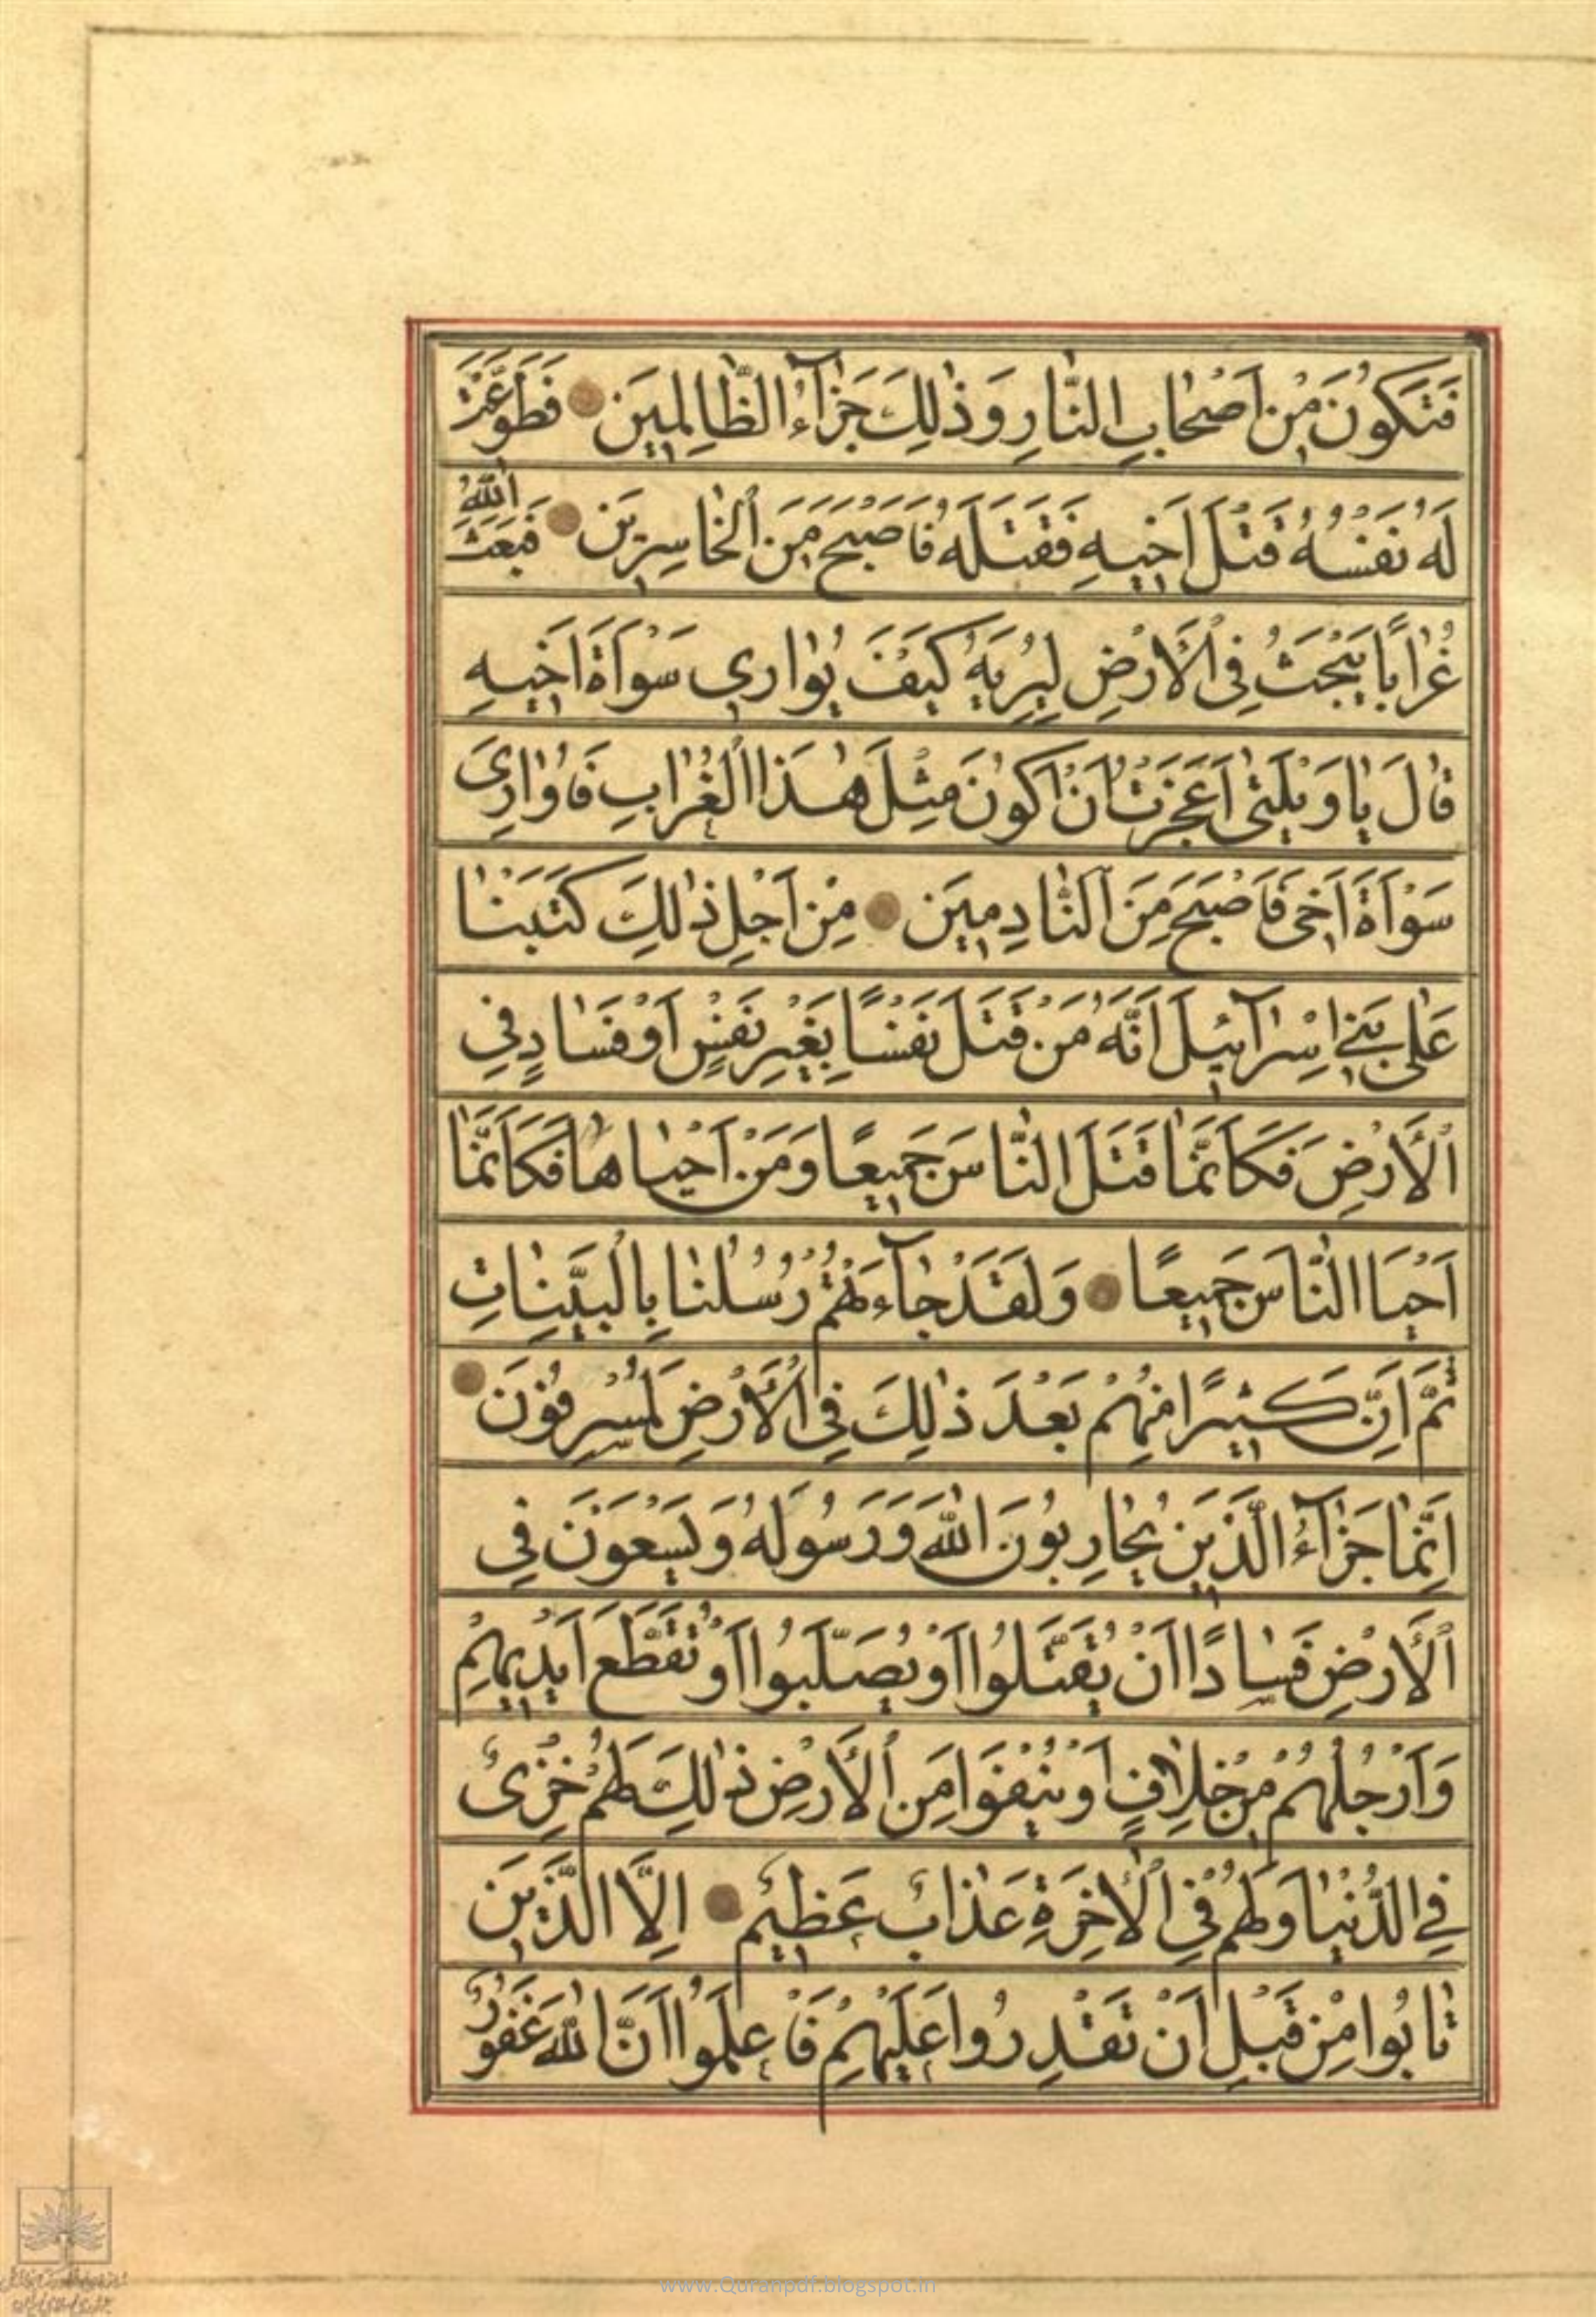 فَتَكُونَ مِنْ اَصْحٰابِ النّٰارِ وَ ذٰلِكَ جَزٰآءُ الظّٰالِمِينَ فَطَوَّعَتْ
لَهُ نَفْسُهُ قَتْلَ اَخِيهِ فَقَتَلَهُ فَاَصْبَحَ مِنَ الْخٰاسِرِينَ فَبَعَثَ اللّٰهُ
غُرٰابًا يَبْحَثُ فِى الْاَرْضِ لِيُرِيَهُ كَيْفَ يُوٰارِي سَوْاَةَ اَخِيهِ
قٰالَ يٰا وَيْلَتٰى اَعَجَزْتُ اَنْ اَكُونَ مِثْلَ هٰذَا الْغُرٰابِ فَاُوٰارِىَ
سَوْاَةَ اَخِى فَاَصْبَحَ مِنَ النّٰادِمِينَ مِنْ اَجْلِ ذٰلِكَ كَتَبْنٰا
عَلٰى بَنِي اِسْرٰآئِيلَ اَنَّهُ مَنْ قَتَلَ نَفْسًا بِغَيْرِ نَفْسٍ اَوْ فَسٰادٍ فِي
الْاَرْضِ فَكَاَنَّمٰا قَتَلَ النّٰاسَ جَمِيعًا وَ مَنْ اَحْيٰاهٰا فَكَاَنَّمٰا
اَحْيَا النّٰاسَ جَمِيعًا وَ لَقَدْ جٰآءَتْهُمْ رُسُلُنٰا بِالْبَيِّنٰاتِ
ثُمَّ اِنَّ كَثِيرًا مِنْهُمْ بَعْدَ ذٰلِكَ فِى الْاَرْضِ لَمُسْرِفُونَ
اِنَّمٰا جَزٰآءُ الَّذِينَ يُحٰارِبُونَ اللّٰهَ وَ رَسُولَهُ وَ يَسْعَوْنَ فِي
الْاَرْضِ فَسٰادًا اَنْ يُقَتَّلُوا اَوْ يُصَلَّبُوا اَوْ تُقَطَّعَ اَيْدِيهِمْ
وَ اَرْجُلُهُمْ مِنْ خِلٰافٍ اَوْ يُنْفَوْا مِنَ الْاَرْضِ ذٰلِكَ لَهُمْ خِزْىٌ
فِي الدُّنْيٰا وَ لَهُمْ فِى الْاٰخِرَةِ عَذٰابٌ عَظِيمٌ اِلَّا الَّذِينَ
تٰابُوا مِنْ قَبْلِ اَنْ تَقْدِرُوا عَلَيْهِمْ فَاعْلَمُوا اَنَّ اللّٰهَ غَفُورٌ
www.Quranpdf.blogspot.in